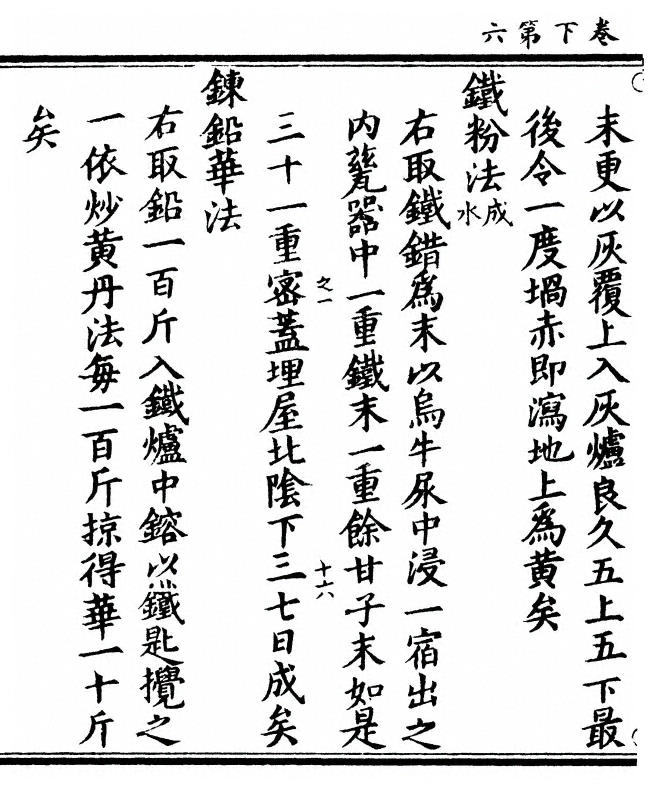 卷下第六
末更以灰覆上入灰爐良久五上五下最
後令一度堝赤即瀉地上爲黃矣
鐵粉法成水
右取鐵錯爲末以烏牛尿中浸一宿出之
內甆器中一重鐵末一重餘甘子末如是
三十一重密蓋埋屋北陰下三七日成矣
之一
十六
鍊鉛華法
右取鉛一百斤入鐵爐中鎔以鐵匙攪之
一依炒黃丹法每一百斤掠得華一十斤
矣